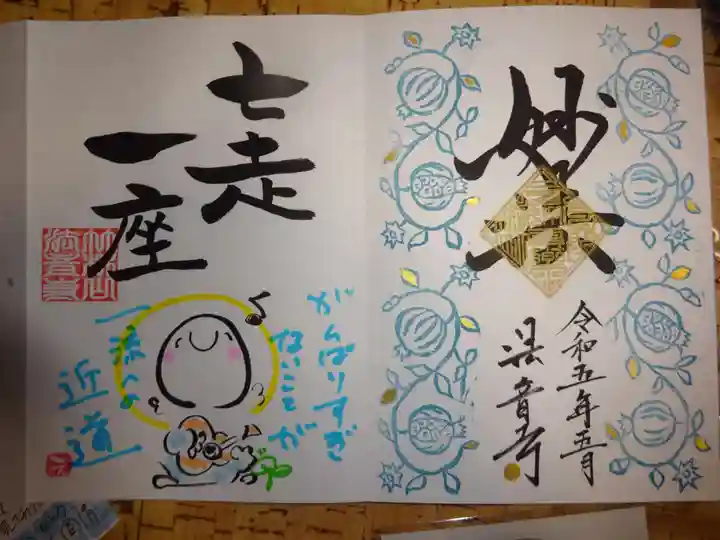 妙法
令和五年五月
法音寺
七走
一座
がんばりすぎ
ないことが
一流への
近道